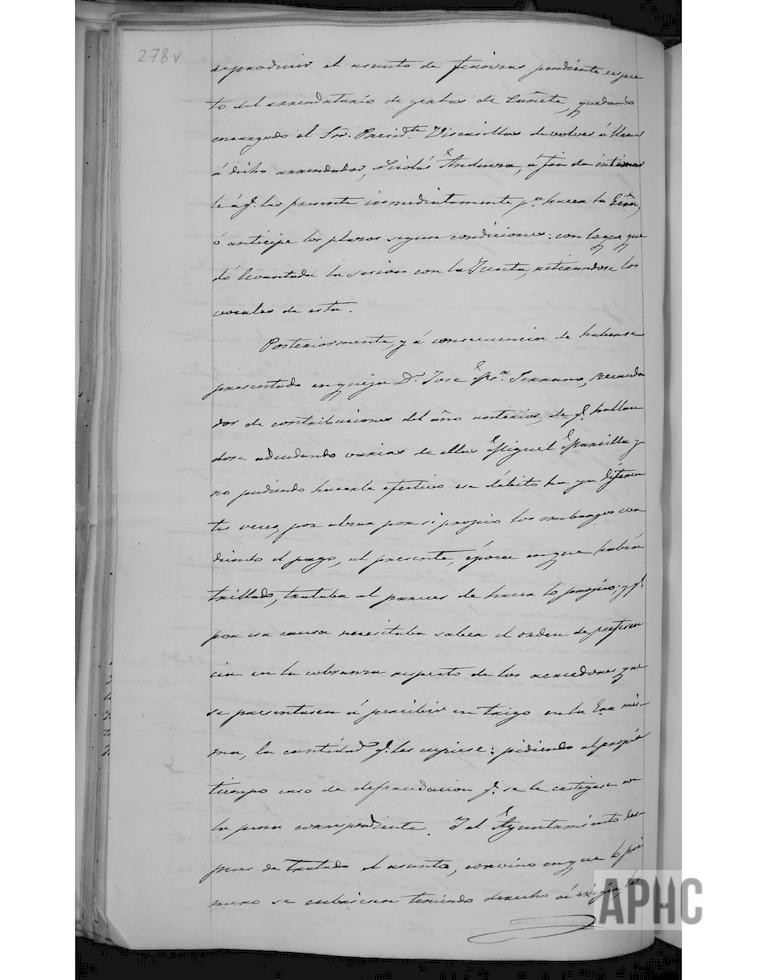 278v
reproducir el asunto de fianzas pendiente respec
to del arrendatario de yerbas de Cañete, quedando
encargado el Sor. Presidte. Viscasillas de volver á llamar
á dicho arrendador, Nicolás Andueza, á fin de intimar
le á q. las presente inmediatamente pa. hacer la Escra,
ó anticipe los plazos segun condiciones: con lo que que
dó levantada la sesion con la Junta, retirandose los
vocales de esta.
Posteriormente, y á consecuencia de haberse
presentado en queja Dn. José Ma. Serrano, recauda
dor de contribuciones del año anterior, de q. hallan
dose adeudando varias de ellas Miguel Mancilla y
no pudiendo hacerle efectivo ese débito ha ya diferen
tes veces, por obrar por si propio los embargos
diendo el pago, al presente, época en que había
trillado, trataba al parecer de hacer lo propio; y q.
por esa causa necesitaba saber el orden de preferen
cia en la cobranza respecto de los acreedores que
se presentasen á percibir en trigo en la Era mis-
ma, la cantidad q. les cupiese: pidiendo al propio
tiempo caso de defraudacion q. se le castigase con
la pena correspondiente. Y el Ayuntamiento des-
pues de tratado el asunto, convino en que lo pri
mero se cubriesen teniendo derecho á
APHC